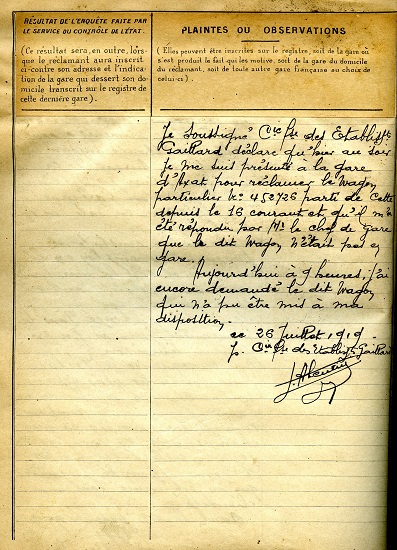 RÉSULTAT DE L'ENQUÊTE FAITE PAR
LE SERVICE DU CONTRÔLE DE L'ÉTAT.
(Ce résultat sera, en outre, lors-
que le réclamant aura inscrit
ci-contre son adresse et l'indica-
tion de la gare qui dessert son do-
micile transcrit sur le registre de
cette dernière gare).
PLAINTES OU OBSERVATIONS
(Elles peuvent être inscrites sur le registre, soit de la gare où
s'est produit le fait qui les motive, soit de la gare du domicile
du réclamant, soit de toute autre gare française au choix de
celui-ci).
Je Soussigné Cie Fse des Etablissts
Gaillard déclare qu'hier au soir
je me suis présenté à la gare
d'Axat pour réclamer le Wagon
particulier No 452726 parti de Cette
depuis le 16 courant et qu'il m'a
été répondu par Mr le chef de Gare
que le dit Wagon n'était pas en
gare.
Aujourd'hui à 9 heures, j'ai
encore demandé le dit Wagon
qui n'a pu être mis à ma
disposition.
ce 26 Juillet 1919
p. Cie Fse des Etablists Gaillard